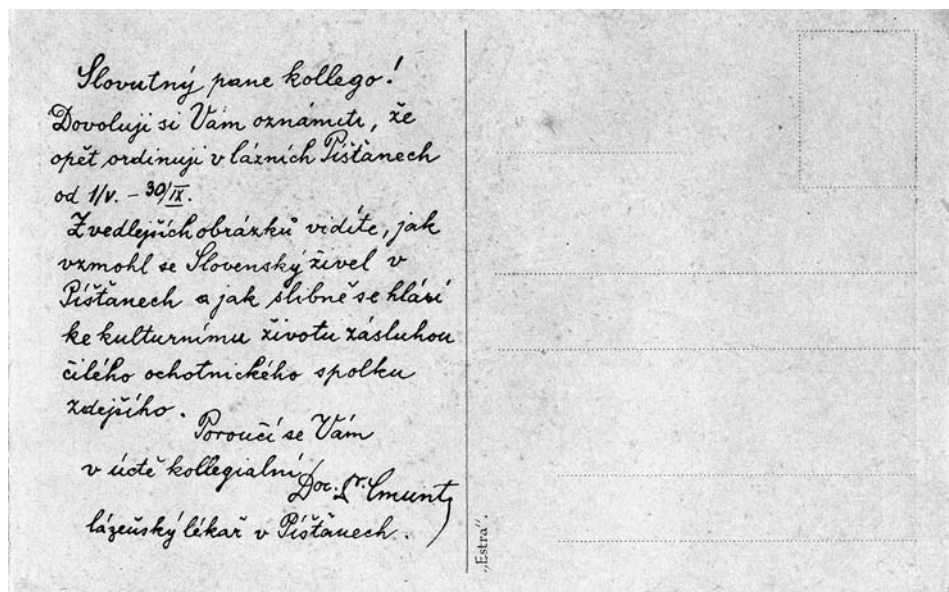 Slovutný pane kollego!
Dovoluji si Vám oznámiti, že
opět ordinuji v lázních Píšťanech
od 1/V. – 30/IX.
Z vedlejších obrázků vidíte, jak
vzmohl se Slovenský živel v
Píšťanech a jak slibně se hlásí
ke kulturnímu životu zásluhou
čilého ochotnického spolku
zdejšího.
Poroučí se Vám
v úctě kollegialní
Doc. Dr. Cmunt
lázeňský lékař v Píšťanech.
„Estra".